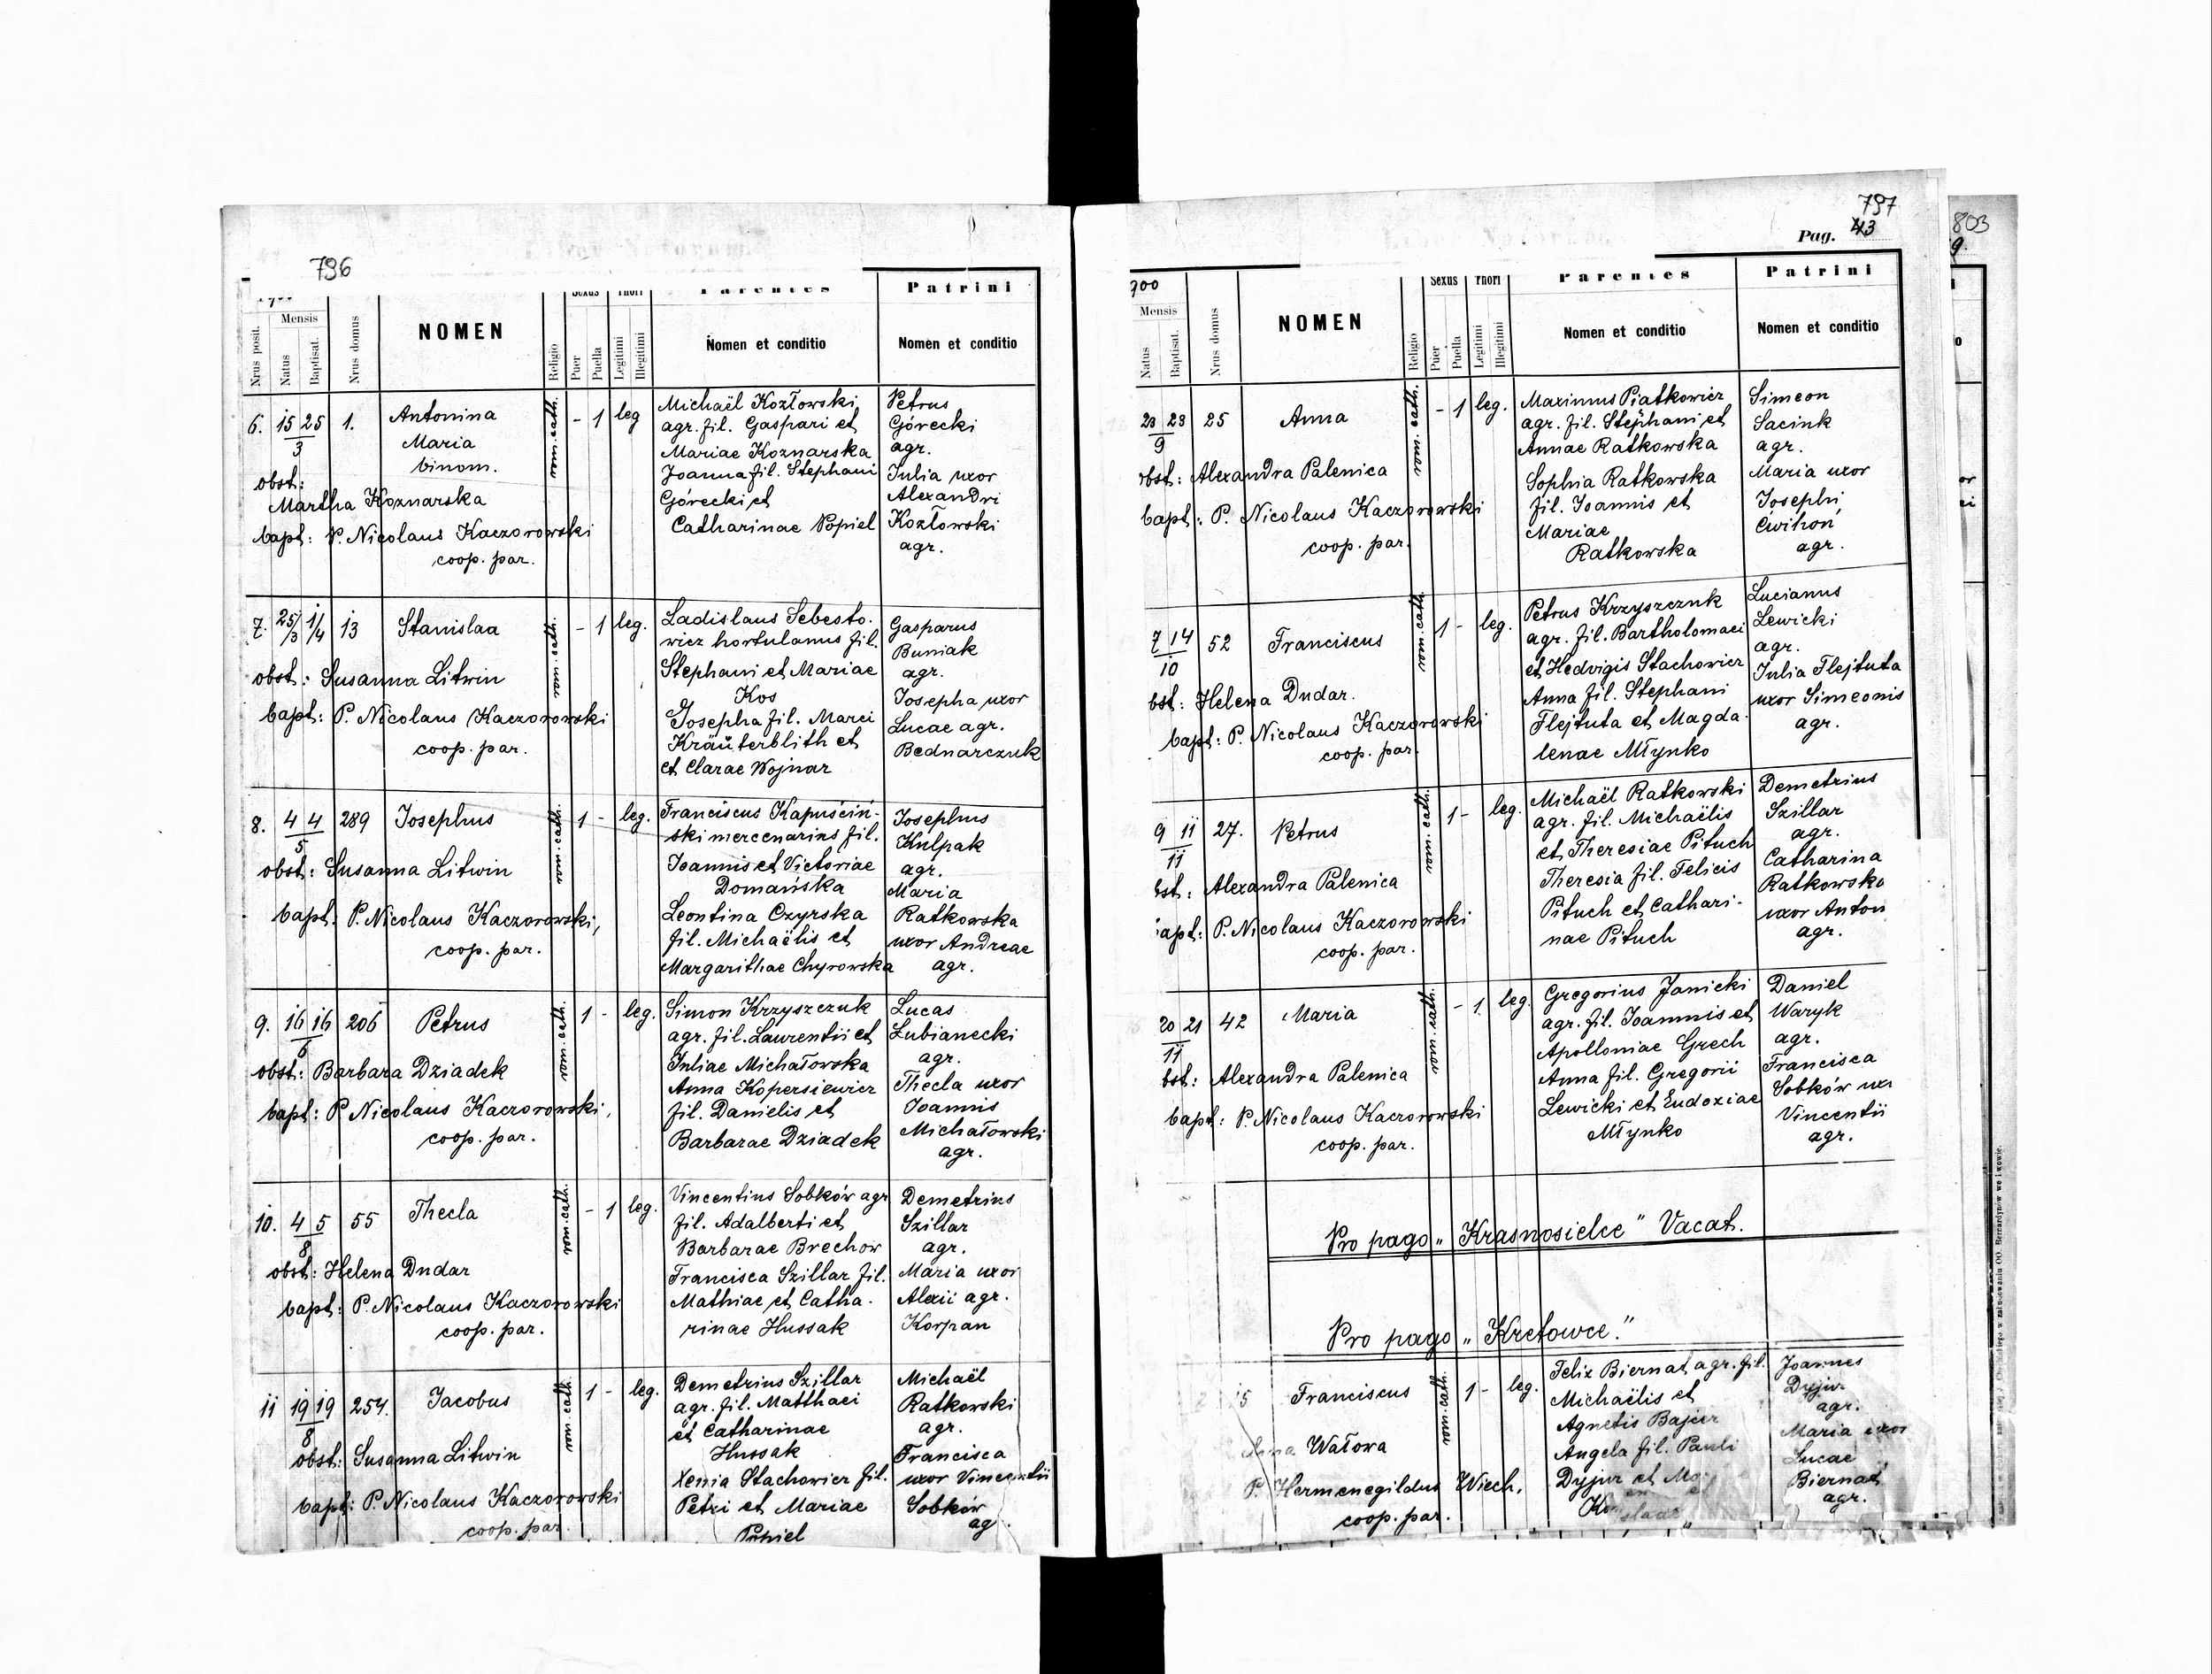 796
Nrus posit.
Mensis
Natus
Baptisat.
Nrus domus
NOMEN
Religio
Sexus
Puer
Puella
Thori
Legitimi
Illegitimi
Parentes
Nomen et conditio
Patrini
Nomen et conditio
6. 15 25 1. Antonina rom. cath. - 1 leg Michaël Kozłowski Petrus
3 Maria agr. fil. Gaspari et Górecki
binom. Mariae Koznarska agr.
obst: Joanna fil. Stephani Julia uxor
Martha Koznarska Górecki et Alexandri
bapt: P. Nicolaus Kaczorowski Catharinae Popiel Kozłowski
coop. par. agr.
7. 25/3 1/4 13 Stanislaa rom. cath. - 1 leg. Ladislaus Sebesto- Gasparus
wicz hortulanus fil. Buniak
obst: Susanna Litwin Stephani et Mariae agr.
Kos Josepha uxor
bapt: P. Nicolaus Kaczorowski Josepha fil. Marci Lucae agr.
coop. par. Kräuterblith et Bednarczuk
et Clarae Wojnar
8. 4 4 289 Josephus rom. cath. 1 - leg. Franciscus Kapuściń- Josephus
5 ski mercenarius fil. Kulpak
obst: Susanna Litwin Joannis et Victoriae agr.
Domańska Maria
bapt: P. Nicolaus Kaczorowski, Leontina Czyrska Ratkowska
coop. par. fil. Michaëlis et uxor Andreae
Margarithae Chyrowska agr.
9. 16 16 206 Petrus rom. cath. 1 - leg. Simon Krzyszczuk Lucas
6 agr. fil. Laurentii et Łubianecki
obst: Barbara Dziadek Juliae Michałowska agr.
Anna Kopersiewicz Thecla uxor
bapt: P. Nicolaus Kaczorowski, fil. Danielis et Joannis
coop. par. Barbarae Dziadek Michałowski
agr.
10. 4 5 55 Thecla rom. cath. - 1 leg. Vincentius Sobków agr Demetrius
8 fil. Adalberti et Szillar
Barbarae Brechow agr.
obst: Helena Dudar Francisca Szillar fil. Maria uxor
bapt: P. Nicolaus Kaczorowski Mathiae et Catha- Alexii agr.
coop. par. rinae Hussak Korpan
11 19 19 254. Jacobus rom. cath. 1 - leg. Demetrius Szillar Michaël
8 agr. fil. Matthaei Ratkowski
et Catharinae agr.
obst: Susanna Litwin Hussak Francisca
Xenia Stachowicz fil. uxor Vincentii
bapt: P. Nicolaus Kaczorowski Petri et Mariae Sobków
coop. par. Popiel ag.
797
Pag. 43
900
Mensis
Natus
Baptisat.
Nrus domus
NOMEN
Religio
Sexus
Puer
Puella
Thori
Legitimi
Illegitimi
Parentes
Nomen et conditio
Patrini
Nomen et conditio
23 23 25 Anna rom. cath. - 1 leg. Maximus Piatkowicz Simeon
9 agr. fil. Stephani et Sacink
Annae Ratkowska agr.
obst: Alexandra Palenica Sophia Ratkowska Maria uxor
bapt: P. Nicolaus Kaczorowski fil. Joannis et Josephi
coop. par. Mariae Ćwihoń
Ratkowska agr.
7 14 52 Franciscus rom. cath. 1 - leg. Petrus Krzyszczuk Lucianus
10 agr. fil. Bartholomaei Lewicki
et Hedvigis Stachowicz agr.
bst: Helena Dudar. Anna fil. Stephani Julia Flejtuta
bapt: P. Nicolaus Kaczorowski Flejtuta et Magda- uxor Simeonis
coop. par. lenae Młynko agr.
9 11 27. Petrus rom. cath. 1 - leg. Michaël Ratkowski Demetrius
11 agr. fil. Michaëlis Szillar
et Theresiae Pituch agr.
bst: Alexandra Palenica Theresia fil. Felicis Catharina
apt: P. Nicolaus Kaczorowski Pituch et Cathari- Ratkowska
coop. par. nae Pituch uxor Anton
agr.
20 21 42 Maria rom. cath. - 1 leg. Gregorius Janicki Daniel
11 agr. fil. Joannis et Waryk
Apolloniae Grech agr.
bst: Alexandra Palenica Anna fil. Gregorii Francisca
bapt: P. Nicolaus Kaczorowski Lewicki et Eudoxiae Sobków ux
coop. par. Młynko Vincentii
agr.
Pro pago „Krasnosielce" Vacat.
Pro pago „Kretowce."
5 Franciscus rom. cath. 1 - leg. Felix Biernat agr. fil. Joannes
Michaëlis et Dyjur
Agnetis Bajur agr.
Wałowa Angela fil. Pauli Maria uxor
P. Hermenegildus Wiech, Dyjur et Lucae
coop. par. Biernat
agr.
803
9.